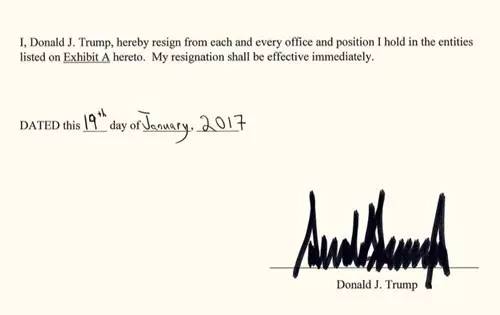 I, Donald J. Trump, hereby resign from each and every office and position I hold in the entities
listed on Exhibit A hereto.  My resignation shall be effective immediately.
DATED this 19th day of January, 2017
Donald J. Trump